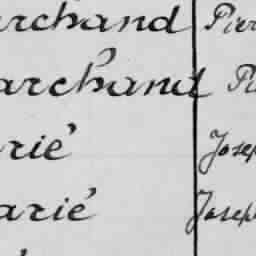 rchand Pier
archand Pi
rié Josep
arié Joseph